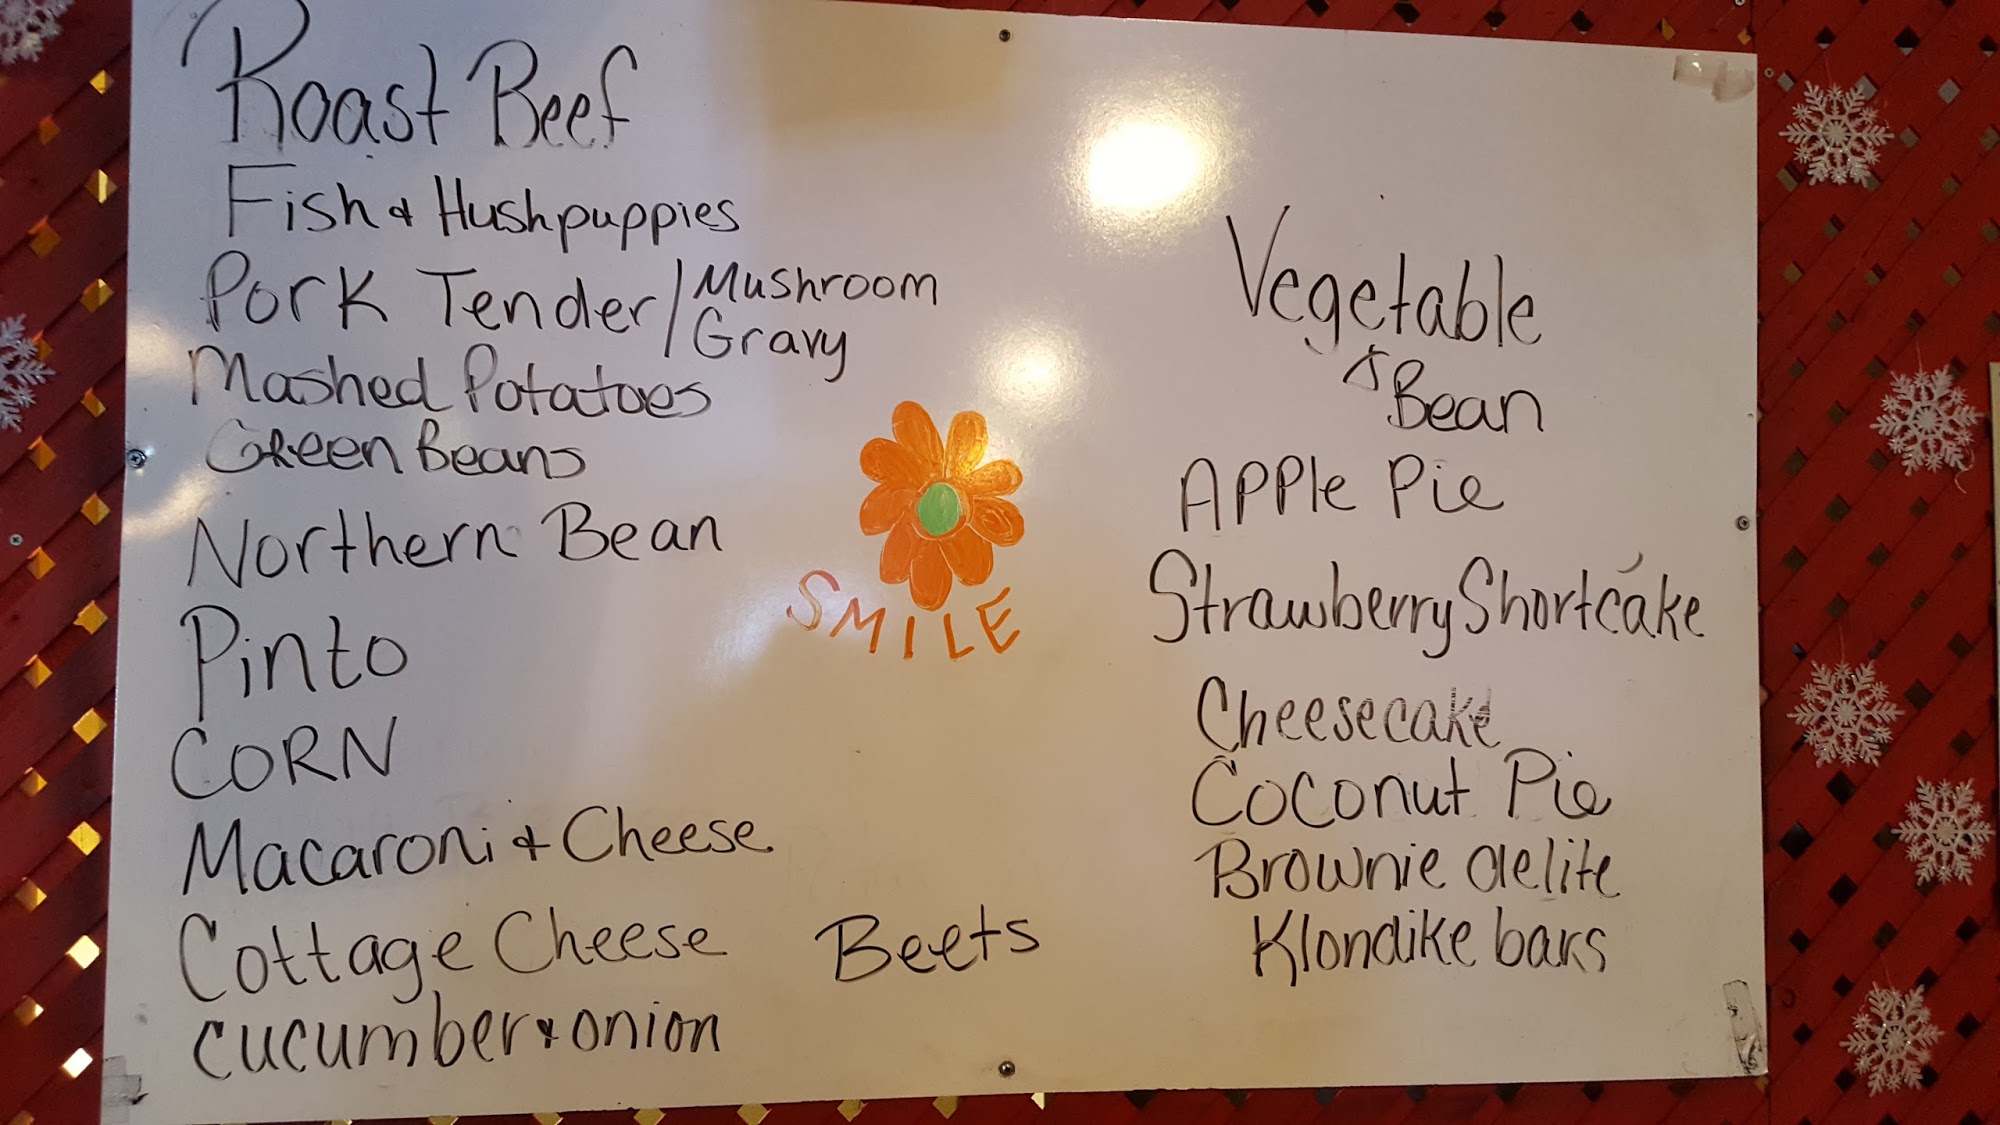 Roast Beef
Fish & Hushpuppies
Pork Tender/Mushroom
Gravy
Mashed Potatoes
Green Beans
Northern Bean
Pinto
CORN
Macaroni & Cheese
Cottage Cheese
Beets
cucumber & onion
SMILE
Vegetable
& Bean
Apple Pie
Strawberry Shortcake
Cheesecake
Coconut Pie
Brownie delite
Klondike bars